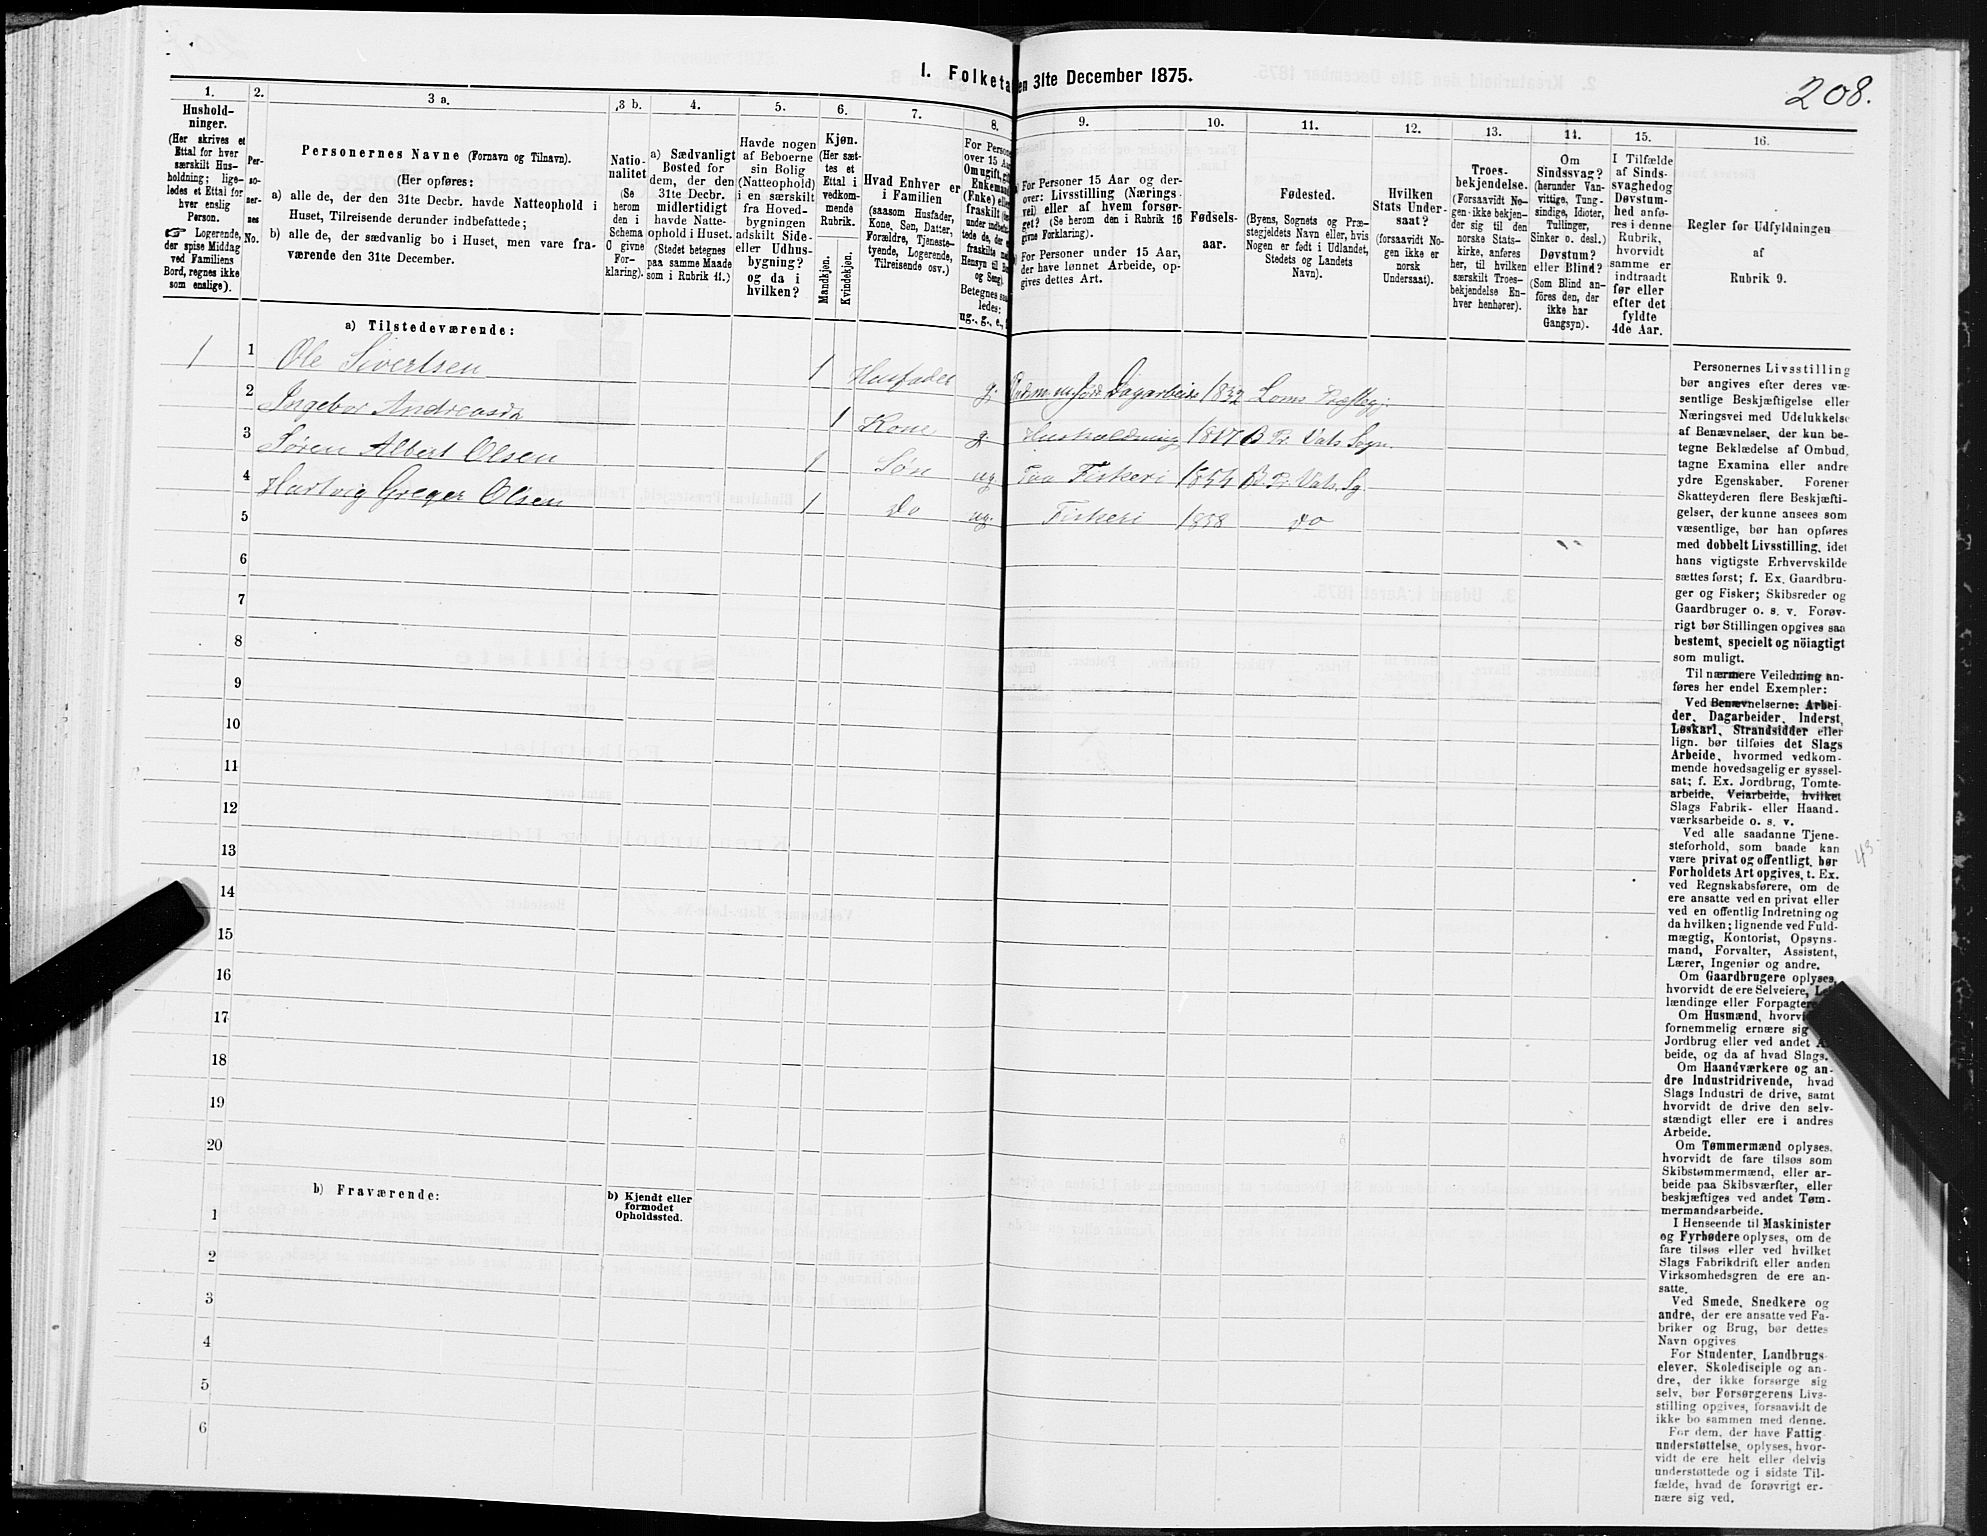 208.
1. Folketa en 31te December 1875.
1. 2. 3 a. 3 b. 4. 5. 6. 7. 8. 9. 10. 11. 12. 13. 14. 15. 16.
Hushold-
ninger.
(Her skrives et
Ettal for hver
særskilt Hus-
holdning; lige-
ledes et Ettal for
hver enslig
Person.
☞ Logerende,
der spise Middag
ved Familiens
Bord, regnes ikke
som enslige).
Per-
so-
ner-
nes
No.
Personernes Navne (Fornavn og Tilnavn).
(Her opføres:
a) alle de, der den 31te Decbr. havde Natteophold i
Huset, Tilreisende derunder indbefattede;
b) alle de, der sædvanlig bo i Huset, men vare fra-
værende den 31te December.
Natio-
nalitet
(Se
herom
den i
Schema
O givne
For-
klaring).
a) Sædvanligt
Bosted for
dem, der den
31te Decbr.
midlertidigt
havde Natte-
ophold i Huset.
(Stedet betegnes
paa samme Maade
som i Rubrik 11.)
Havde nogen
af Beboerne
sin Bolig
(Natteophold)
i en særskilt
fra Hoved-
bygningen
adskilt Side-
eller Udhus-
bygning?
og da i
hvilken?
Kjøn.
(Her sæt-
tes et
Ettal i
vedkom-
mende
Rubrik.
Mandkjøn.
Kvindekjøn.
Hvad Enhver er
i Familien
(saasom Husfader,
Kone, Søn, Datter,
Forældre, Tjeneste-
tyende, Logerende,
Tilreisende osv.)
For Persone
over 15 Aa
Om ugift, gif
Enkemand
(Enke) elle
fraskilt
Hensyn til Bo
og Seng).
Betegnes saa
ledes:
ug., g., e.,
For Personer 15 Aar og der-
over: Livsstilling (Nærings-
vei) eller af hvem forsør-
get? (Se herom den i Rubrik 16
givne Forklaring).
For Personer under 15 Aar,
der have lønnet Arbeide, op-
gives dettes Art.
Fødsels-
aar.
Fødested.
(Byens, Sognets og Præ-
stegjeldets Navn eller, hvis
Nogen er født i Udlandet,
Stedets og Landets
Navn).
Hvilken
Stats Under-
saat?
(forsaavidt No-
gen ikke er
norsk
Undersaat).
Troes-
bekjendelse.
(Forsaavidt No-
gen ikke bekjen-
der sig til den
norske Stats-
kirke, anføres
her, til hvilken
særskilt Troes-
bekjendelse En-
hver henhører).
Om
Sindssvag?
(herunder Van-
vittige, Tung-
sindige, Idioter,
Tullinger,
Sinker o. desl.)
Døvstum?
eller Blind?
(Som Blind an-
føres den, der
ikke har
Gangsyn).
I Tilfælde
af Sinds-
svaghedog
Døvstum-
hed anfø-
res i denne
Rubrik,
hvorvidt
samme er
indtraadt
før eller
efter det
fyldte
4de Aar.
Regler for Udfyldningen
af
Rubrik 9.
a) Tilstedeværende:
1 1 Ole Sivertsen 1 Husfader g. Dagarbeide 1832 Loms Præstegj.
2 Ingebor Andreasdr 1 Kone g. Husholdning 1817 B Pr. Vats Sogn
3 Søren Albert Olsen 1 Søn ug. Paa Fiskeri 1854 B. Pr. Vats Sg
4 Hartvig Greger Olsen 1 Do ug. Fiskeri 1858 do
5
6
7
8
9
10
11
12
13
14
15
16
17
18
19
20
b) Fraværende:
b) Kjendt eller
formodet
Opholdssted.
1
2
3
4
5
6
Personernes Livsstilling
bør angives efter deres væ-
sentlige Beskjæftigelse eller
Næringsvei med Udelukkelse
af Benævnelser, der kun be-
tegne Beklædelse af Ombud,
tagne Examina eller andre
ydre Egenskaber. Forener
Skatteyderen flere Beskjæfti-
gelser, der kunne ansees som
væsentlige, bør han opføres
med dobbelt Livsstilling, idet
hans vigtigste Erhvervskilde
sættes først; f. Ex. Gaardbru-
ger og Fisker; Skibsreder og
Gaardbruger o. s. v. Forøv-
rigt bør Stillingen opgives saa
bestemt, specielt og nöiagtigt
som muligt.
Til nærmere Veiledning an-
føres her endel Exempler:
Ved Benævnelserne: Arbei-
der, Dagarbeider, Inderst,
Løskarl, Strandsidder eller
lign. bør tilføies det Slags
Arbeide, hvormed vedkom-
mende hovedsagelig er syssel-
sat; f. Ex. Jordbrug, Tomte-
arbeide, Veiarbeide, hvilket
Slags Fabrik- eller Haand-
værksarbeide o. s. v.
Ved alle saadanne Tjene-
steforhold, som baade kan
være privat og offentligt, bør
Forholdets Art opgives, f. Ex.
ved Regnskabsførere, om de
ere ansatte ved en privat eller
ved en offentlig Indretning og
da hvilken; lignende ved Fuld-
mægtig, Kontorist, Opsyns-
mand, Forvalter, Assistent,
Lærer, Ingeniør og andre.
Om Gaardbrugere oplyses,
hvorvidt de ere Selveiere, Lei
lændinge eller Forpagtere
Om Husmænd, hvorvi
fornemmelig ernære sig
Jordbrug eller ved andet A
beide, og da af hvad Slags.
Om Haandværkere og an-
dre Industridrivende, hvad
Slags Industri de drive, samt
hvorvidt de drive den selv-
stændigt eller ere i andres
Arbeide.
Om Tømmermænd oplyses,
hvorvidt de fare tilsøs som
Skibstømmermænd, eller ar-
beide paa Skibsværfter, eller
beskjæftiges ved andet Tøm-
mermandsarbeide.
I Henseende til Maskinister
og Fyrbødere oplyses, om de
fare tilsøs eller ved hvilket
Slags Fabrikdrift eller anden
Virksomhedsgren de ere an-
satte.
Ved Smede, Snedkere og
andre, der ere ansatte ved Fa-
briker og Brug, bør dettes
Navn opgives
For Studenter, Landbrugs-
elever, Skoledisciple og an-
dre, der ikke forsørge sig
selv, bør Forsørgerens Livs-
stilling opgives, forsaavidt de
ikke bo sammen med denne.
For dem, der have Fattig-
understøttelse, oplyses, hvor-
vidt de ere helt eller delvis
understøttede og i sidste Til-
fælde, hvad de forøvrigt er-
nære sig ved.